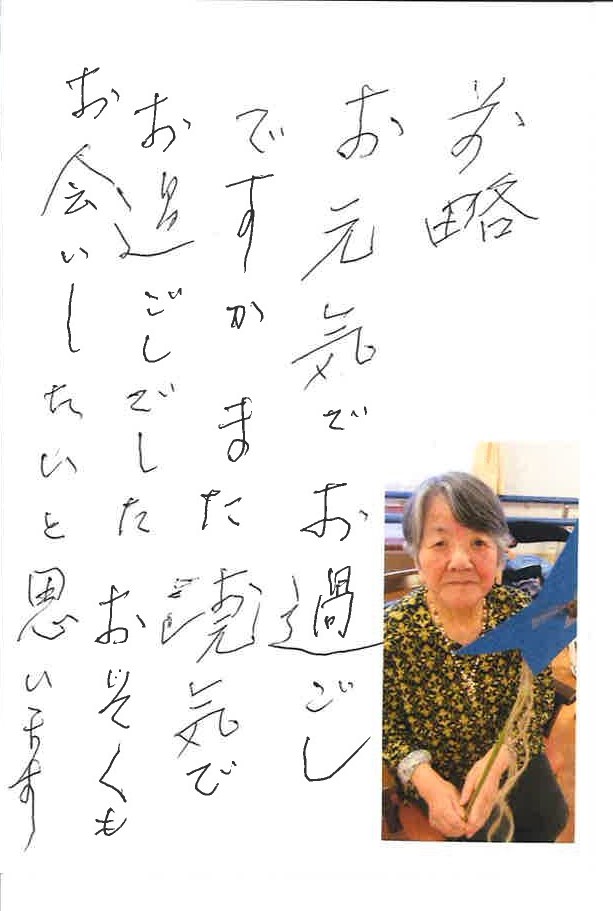 前略
お元気でお過ごし
ですかまた気で
おごしでした お早くも
お会いしたいと思います